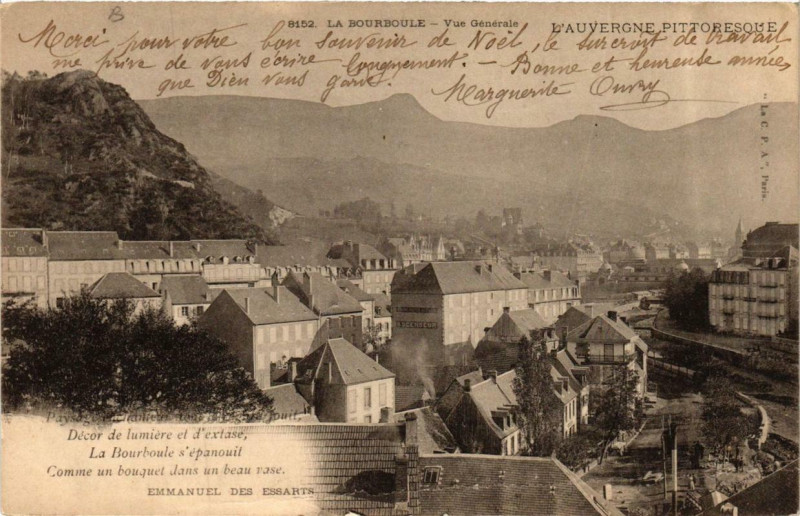 B
8152. LA BOURBOULE – Vue Générale
L'AUVERGNE PITTORESQUE
Merci pour votre bon souvenir de Noël, le surcroît de travail
me prive de vous écrire longuement. – Bonne et heureuse année,
que Dieu vous garde.
Marguerite
"La C. P. A", Paris.
Décor de lumière et d'extase,
La Bourboule s'épanouit
Comme un bouquet dans un beau vase.
EMMANUEL DES ESSARTS